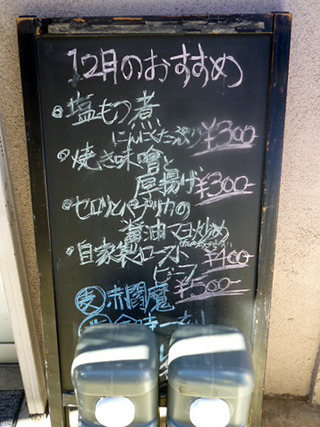 12月のおすすめ
塩もつ煮
にんにくたっぷり ¥300-
焼き味噌と
厚揚げ ¥300-
セロリとパプリカの
醤油マヨ炒め
¥400
自家製ロースト
ビーフ ¥500-
麦 赤閻魔